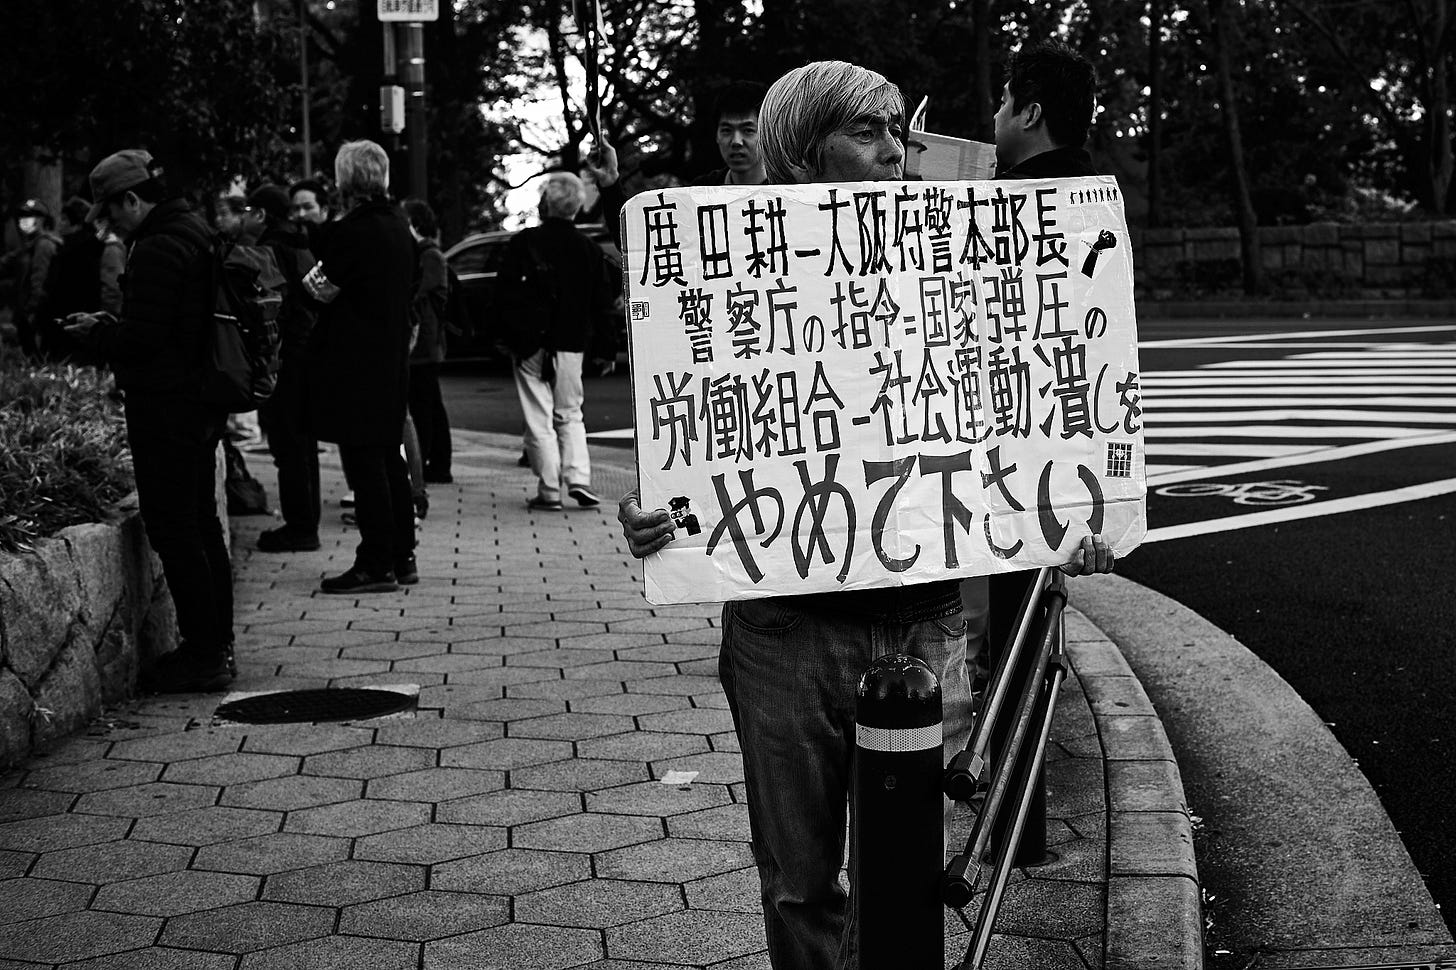 廣田耕一大阪府警本部長
警察庁の指令=国家弾圧の
労働組合-社会運動潰しを
やめて下さい